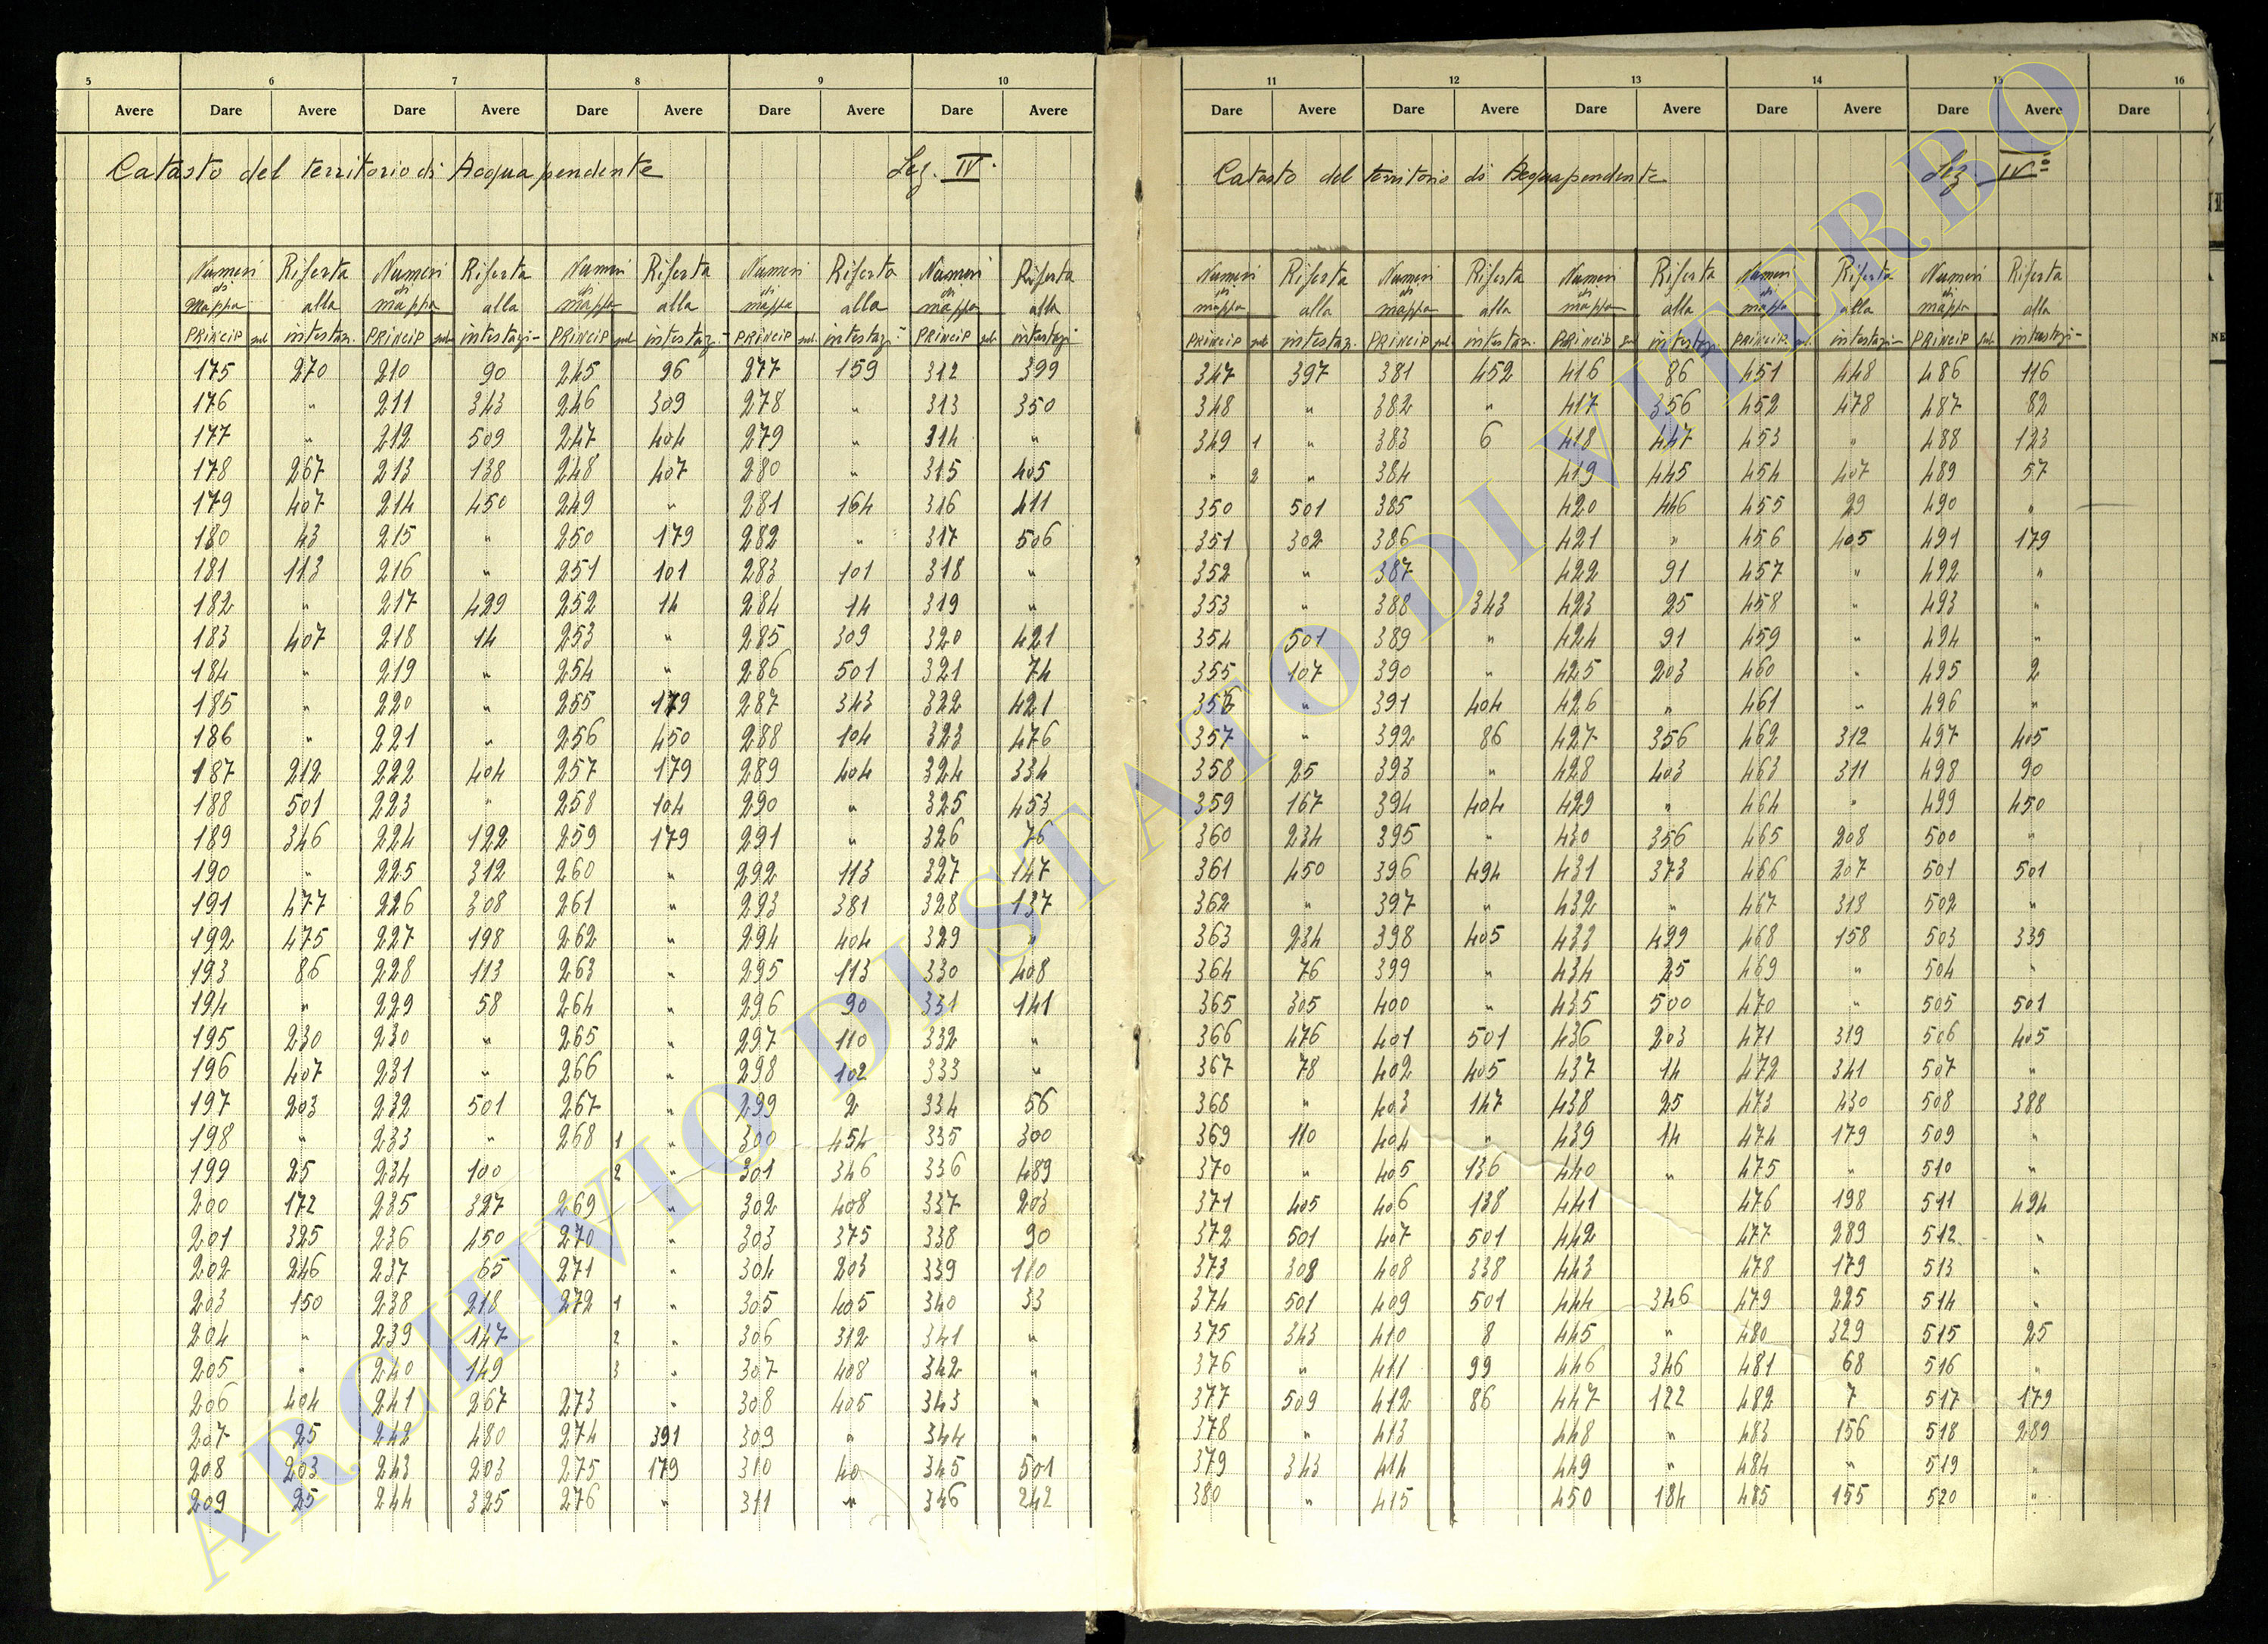 5 6 7 8 9 10
Avere Dare Avere Dare Avere Dare Avere Dare Avere Dare Avere
Catasto del territorio di Acquapendente Sez. IV
Numeri di mappa Riferta alla Numeri di mappa Riferta alla Numeri di mappa Riferta alla Numeri di mappa Riferta alla Numeri di mappa Riferta alla
PRINCIP sub intestazi. PRINCIP sub intestazi- PRINCIP sub intestazi. PRINCIP sub. intestazi. PRINCIP sub. intestazi
175 270 210 90 245 96 277 159 312 399
176 " 211 343 246 309 278 " 313 350
177 " 212 509 247 404 279 " 314 "
178 267 213 138 248 407 280 " 315 405
179 407 214 450 249 " 281 164 316 411
180 43 215 " 250 179 282 " 317 506
181 113 216 " 251 101 283 101 318 "
182 " 217 429 252 14 284 14 319 "
183 407 218 14 253 " 285 309 320 421
184 " 219 " 254 " 286 501 321 74
185 " 220 " 255 179 287 343 322 421
186 " 221 " 256 450 288 104 323 476
187 212 222 404 257 179 289 404 324 334
188 501 223 " 258 104 290 " 325 453
189 346 224 122 259 179 291 " 326 76
190 " 225 312 260 " 292 113 327 147
191 477 226 308 261 " 293 381 328 137
192 475 227 198 262 " 294 404 329 "
193 86 228 113 263 " 295 113 330 408
194 " 229 58 264 " 296 90 331 141
195 230 230 " 265 " 297 110 332 "
196 407 231 " 266 " 298 102 333 "
197 203 232 501 267 " 299 2 334 56
198 " 233 " 268 1 " 300 454 335 300
199 25 234 100 2 " 301 346 336 489
200 172 235 327 269 " 302 408 337 203
201 325 236 450 270 " 303 375 338 90
202 246 237 65 271 " 304 203 339 110
203 150 238 218 272 1 " 305 405 340 33
204 " 239 147 2 " 306 312 341 "
205 " 240 149 3 " 307 408 342 "
206 404 241 267 273 " 308 405 343 "
207 25 242 480 274 391 309 " 344 "
208 203 243 203 275 179 310 40 345 501
209 25 244 325 276 " 311 " 346 242
11 12 13 14 15 16
Dare Avere Dare Avere Dare Avere Dare Avere Dare Avere Dare
Catasto del territorio di Acquapendente Sez. IVª
Numeri di mappa Riferta alla Numeri di mappa Riferta alla Numeri di mappa Riferta alla Numeri di mappa Riferta alla Numeri di mappa Riferta alla
PRINCIP sub intestazi. PRINCIP sub. intestazi. PRINCIP sub intestazi PRINCIP sub. intestazi- PRINCIP sub. intestazi-
347 397 381 452 416 86 451 448 486 116
348 " 382 " 417 356 452 478 487 82
349 1 " 383 6 418 447 453 " 488 123
" 2 " 384 419 445 454 407 489 57
350 501 385 420 446 455 29 490 "
351 302 386 421 " 456 405 491 179
352 " 387 422 91 457 " 492 "
353 " 388 343 423 25 458 " 493 "
354 501 389 " 424 91 459 " 494 "
355 107 390 " 425 203 460 " 495 2
356 " 391 404 426 " 461 " 496 "
357 " 392 86 427 356 462 312 497 405
358 25 393 " 428 403 463 311 498 90
359 167 394 404 429 " 464 " 499 450
360 234 395 " 430 356 465 208 500 "
361 450 396 494 431 373 466 207 501 501
362 " 397 " 432 " 467 313 502 "
363 234 398 405 433 499 468 158 503 339
364 76 399 " 434 25 469 " 504 "
365 305 400 " 435 500 470 " 505 501
366 476 401 501 436 203 471 319 506 405
367 78 402 405 437 14 472 341 507 "
368 " 403 147 438 25 473 430 508 388
369 110 404 " 439 14 474 179 509 "
370 " 405 136 440 " 475 " 510 "
371 405 406 138 441 476 198 511 494
372 501 407 501 442 477 289 512 "
373 308 408 338 443 478 179 513 "
374 501 409 501 444 346 479 225 514 "
375 343 410 8 445 " 480 329 515 25
376 " 411 99 446 346 481 68 516 "
377 509 412 86 447 122 482 7 517 179
378 " 413 448 " 483 156 518 289
379 343 414 449 " 484 " 519 "
380 " 415 450 184 485 155 520 "
ARCHIVIO DI STATO DI VITERBO